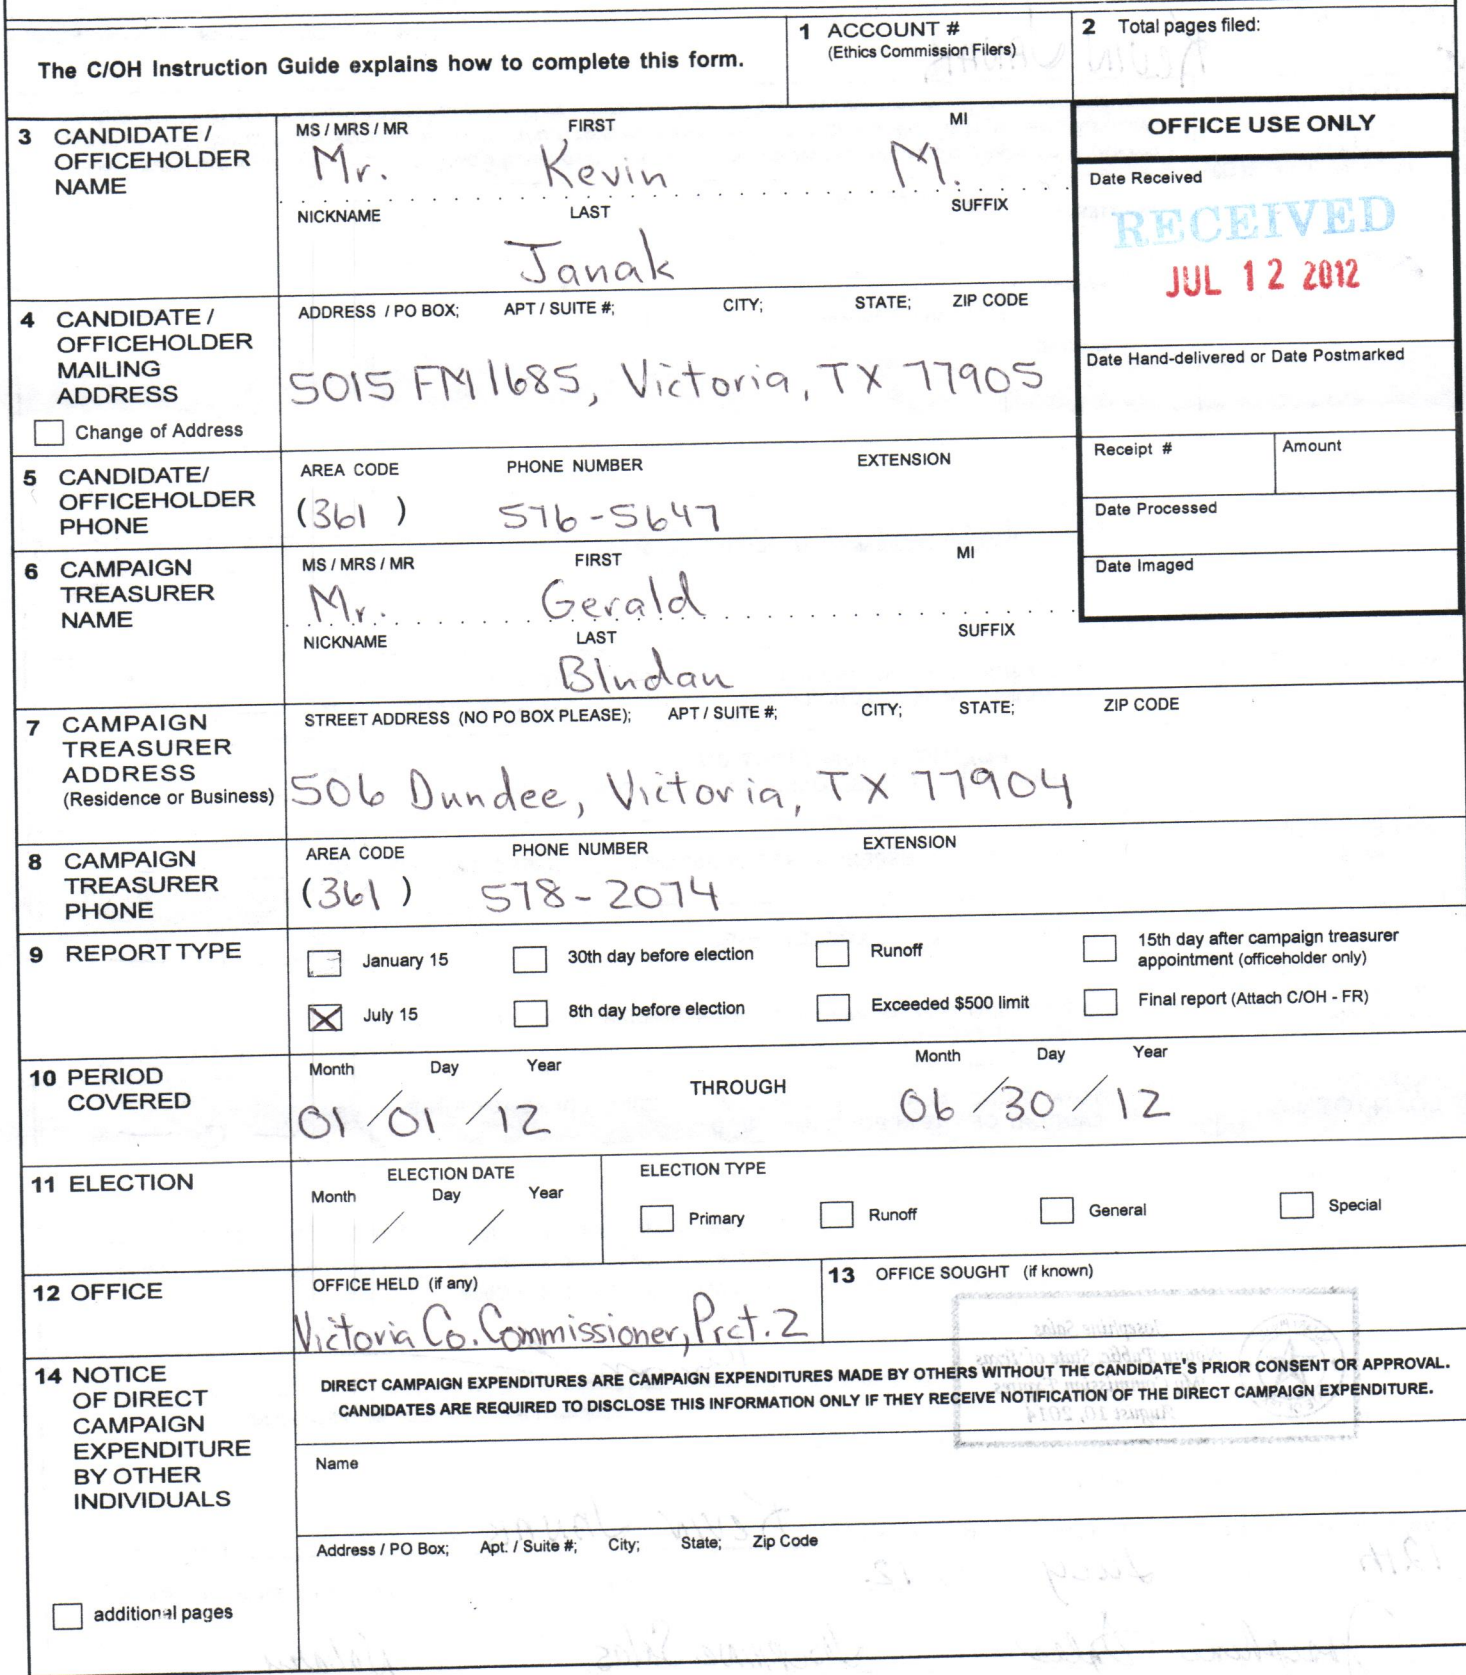 The C/OH Instruction Guide explains how to complete this form.
1 ACCOUNT #
(Ethics Commission Filers)
2 Total pages filed:
3 CANDIDATE / OFFICEHOLDER NAME
MS / MRS / MR FIRST MI
Mr. Kevin M.
NICKNAME LAST SUFFIX
Janak
OFFICE USE ONLY
Date Received
RECEIVED
JUL 12 2012
Date Hand-delivered or Date Postmarked
Receipt # Amount
Date Processed
Date Imaged
4 CANDIDATE / OFFICEHOLDER MAILING ADDRESS
Change of Address
ADDRESS / PO BOX; APT / SUITE #; CITY; STATE; ZIP CODE
5015 FM 1685, Victoria, TX 77905
5 CANDIDATE/ OFFICEHOLDER PHONE
AREA CODE PHONE NUMBER EXTENSION
(361) 576-5647
6 CAMPAIGN TREASURER NAME
MS / MRS / MR FIRST MI
Mr. Gerald
NICKNAME LAST SUFFIX
Bludau
7 CAMPAIGN TREASURER ADDRESS
(Residence or Business)
STREET ADDRESS (NO PO BOX PLEASE); APT / SUITE #; CITY; STATE; ZIP CODE
506 Dundee, Victoria, TX 77904
8 CAMPAIGN TREASURER PHONE
AREA CODE PHONE NUMBER EXTENSION
(361) 578-2074
9 REPORT TYPE
January 15 30th day before election Runoff 15th day after campaign treasurer appointment (officeholder only)
July 15 8th day before election Exceeded $500 limit Final report (Attach C/OH - FR)
10 PERIOD COVERED
Month Day Year THROUGH Month Day Year
01/01/12 06/30/12
11 ELECTION
ELECTION DATE
Month Day Year
/ /
ELECTION TYPE
Primary Runoff General Special
12 OFFICE
OFFICE HELD (if any)
Victoria Co. Commissioner, Prct. 2
13 OFFICE SOUGHT (if known)
14 NOTICE OF DIRECT CAMPAIGN EXPENDITURE BY OTHER INDIVIDUALS
DIRECT CAMPAIGN EXPENDITURES ARE CAMPAIGN EXPENDITURES MADE BY OTHERS WITHOUT THE CANDIDATE'S PRIOR CONSENT OR APPROVAL.
CANDIDATES ARE REQUIRED TO DISCLOSE THIS INFORMATION ONLY IF THEY RECEIVE NOTIFICATION OF THE DIRECT CAMPAIGN EXPENDITURE.
Name
Address / PO Box; Apt. / Suite #; City; State; Zip Code
additional pages